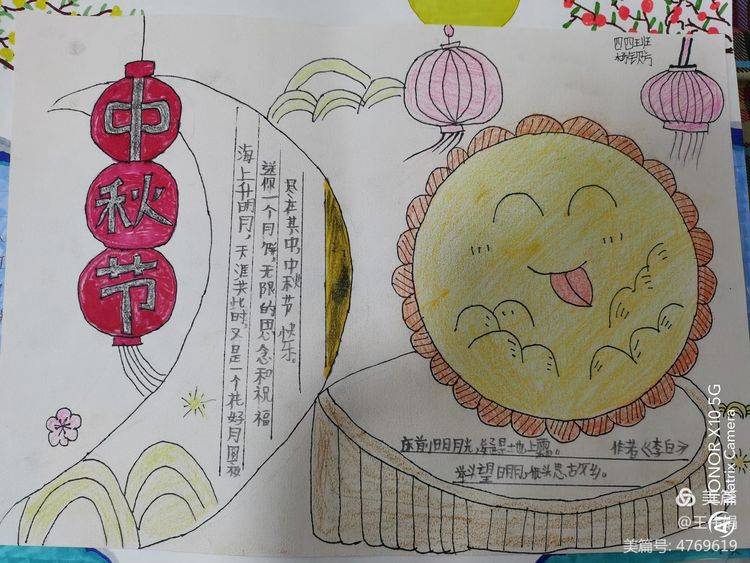 中秋节
海上升明月，天涯共此时，又是一个花好月圆夜
送你一个月饼，无限的思念和祝福
尽在其中，中秋节快乐。
四四班
床前明月光，疑是地上霜。 作者《李白》
举头望明月，低头思故乡。
HONOR X10 5G
Matrix Camera
美篇
美篇号: 4769619